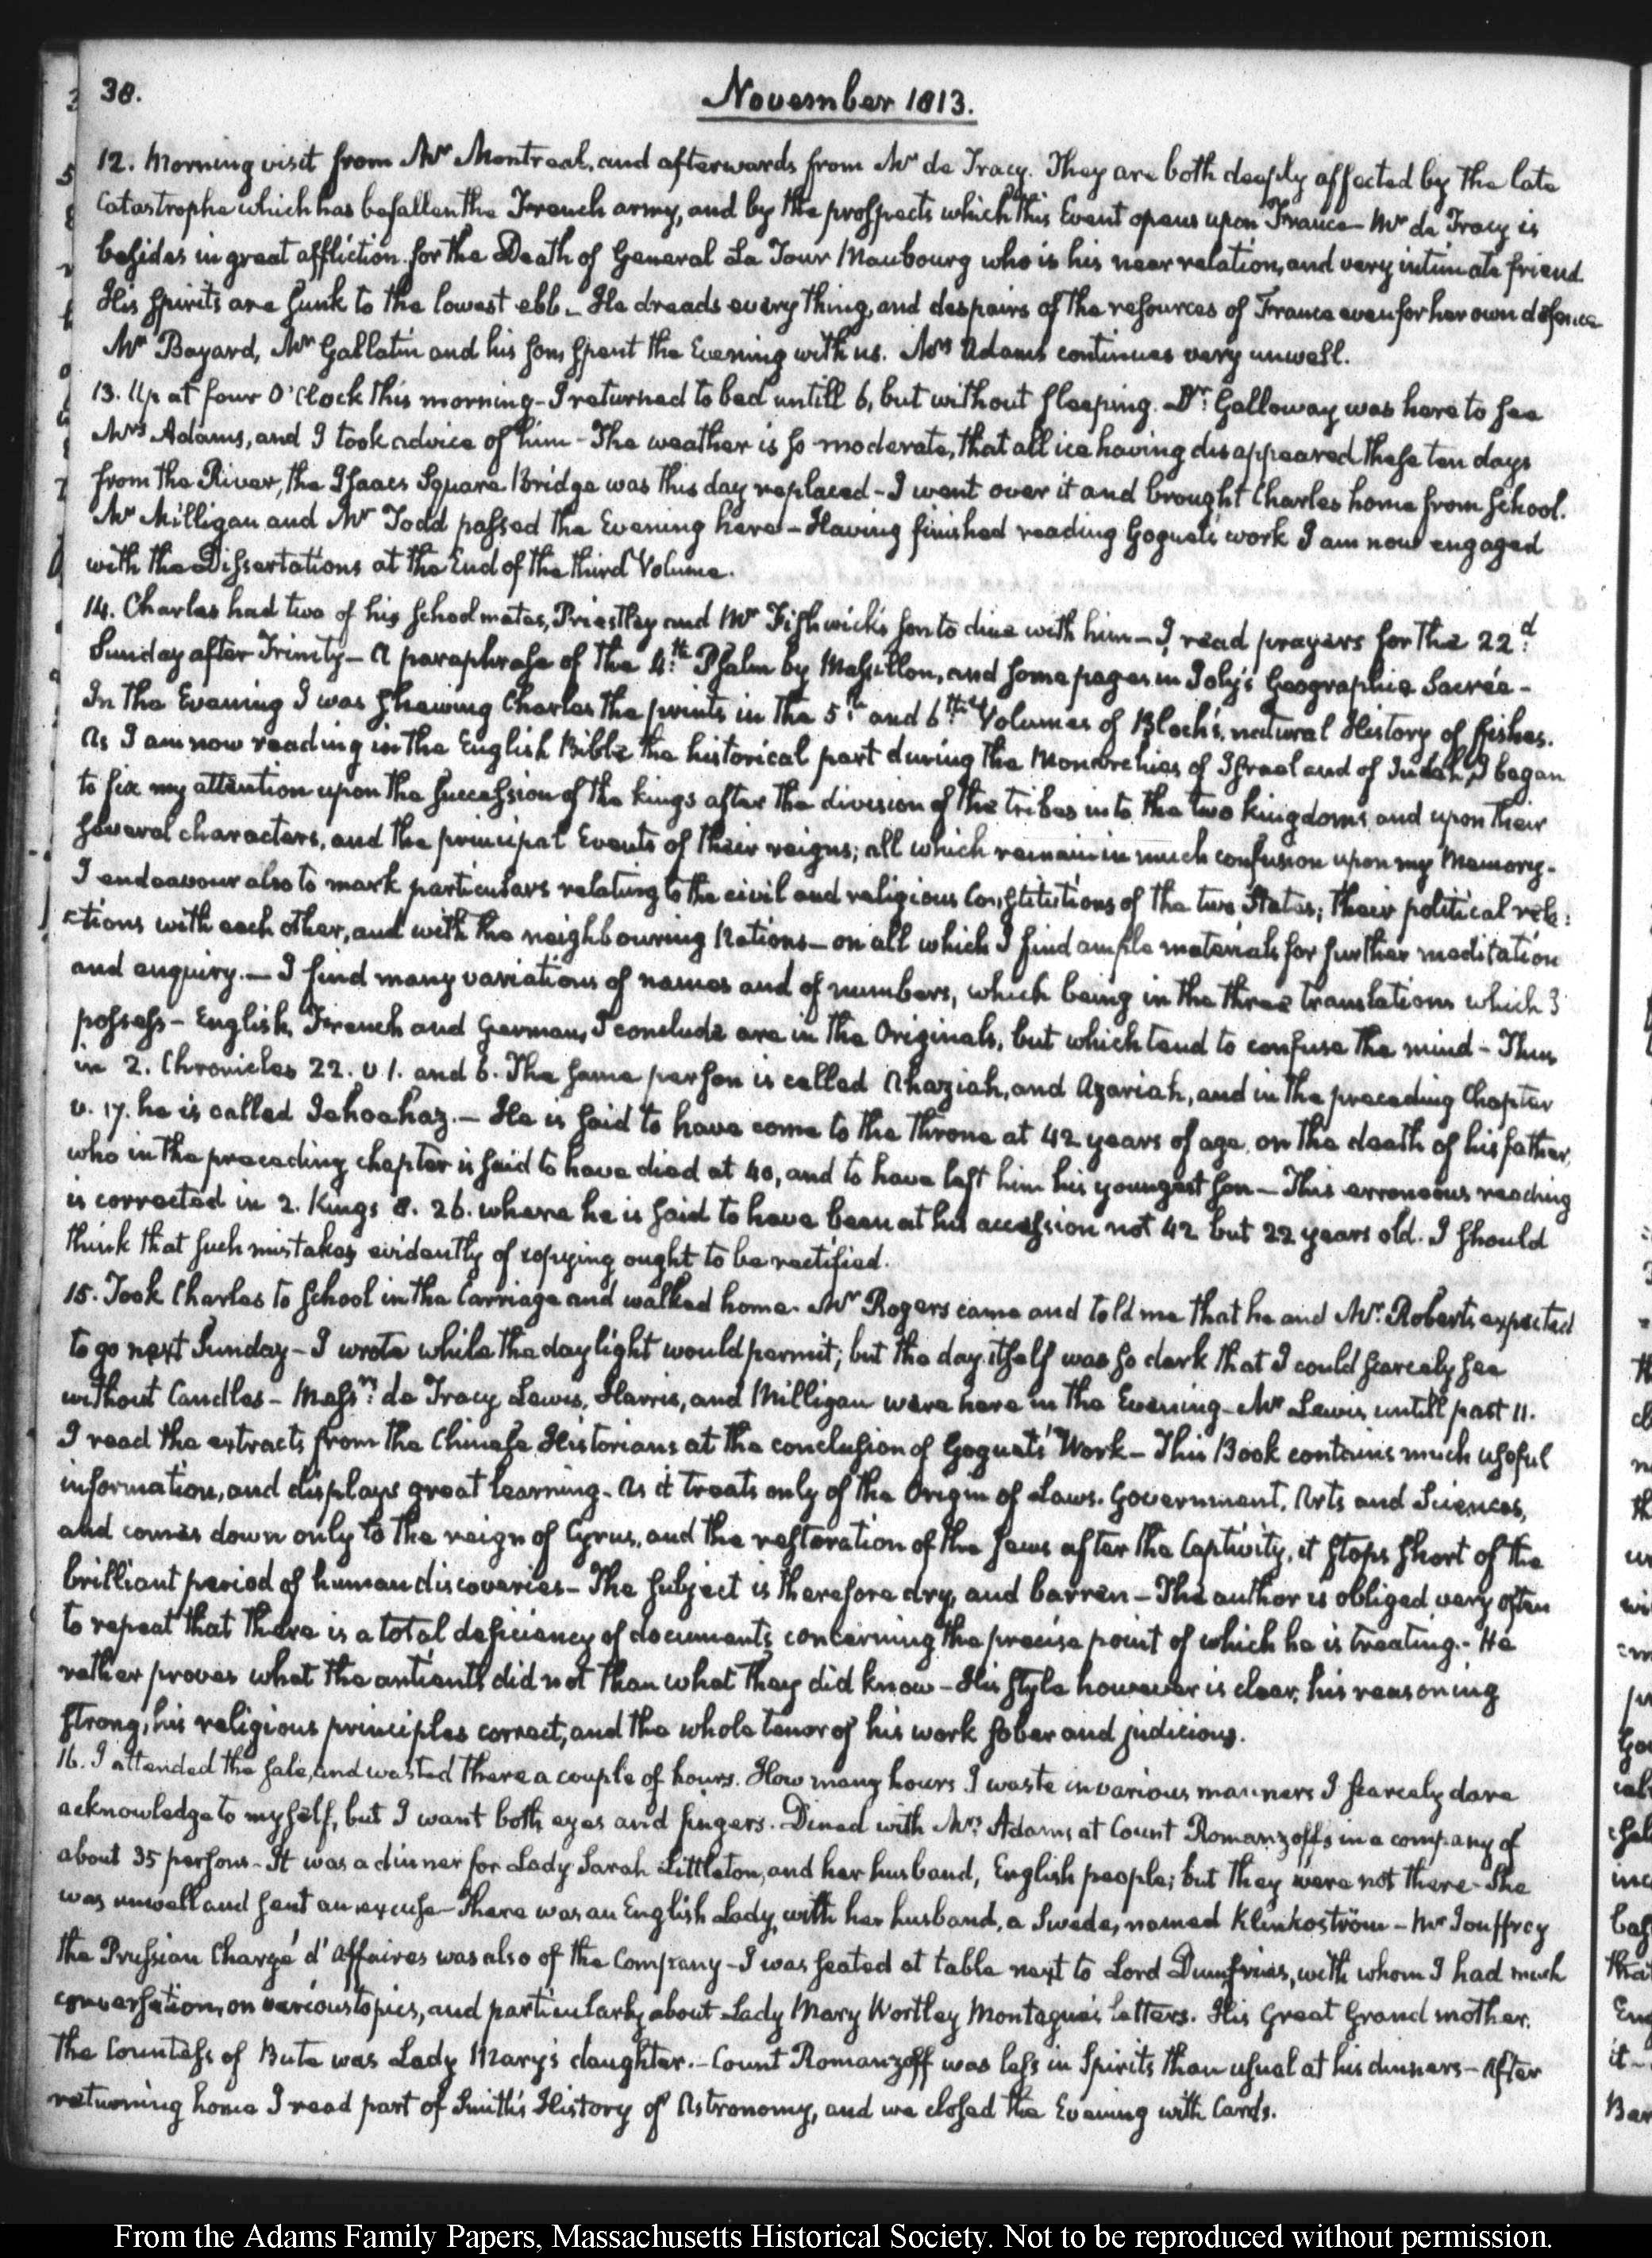 38.
November 1813.
12. Morning visit from Mr Montreal, and afterwards from Mr de Tracy. They are both deeply affected by the late
Catastrophe which has befallen the French army, and by the prospects which this Event opens upon France - Mr de Tracy is
besides in great affliction for the Death of General La Tour Maubourg who is his near relation, and very intimate friend
His Spirits are sunk to the lowest ebb - He dreads every thing, and despairs of the resources of France even for her own defence
Mr Bayard, Mr Gallatin and his son, spent the Evening with us. Mrs Adams continues very unwell.
13. Up at four O'Clock this morning - I returned to bed untill 6, but without sleeping. Dr. Galloway was here to see
Mrs Adams, and I took advice of him - The weather is so moderate, that all ice having disappeared these ten days
from the River, the Isaacs Square Bridge was this day replaced - I went over it and brought Charles home from School.
Mr Milligan and Mr Todd passed the Evening here - Having finished reading Goguet's work I am now engaged
with the Dissertations at the End of the third Volume.
14. Charles had two of his schoolmates, Priestley and Mr Fishwick's son to dine with him - I read prayers for the 22d.
Sunday after Trinity - A paraphrase of the 4th. Psalm by Massillon, and some pages in Joly's Geographie Sacrée -
In the Evening I was shewing Charles the prints in the 5th and 6th Volumes of Bloch's natural History of fishes.
As I am now reading in the English Bible the historical part during the Monarchies of Israel and of Judah, I began
to fix my attention upon the succession of the kings after the division of the tribes into the two kingdoms and upon their
several characters, and the principal Events of their reigns; all which remain in much confusion upon my Memory -
I endeavour also to mark particulars relating to the civil and religious Constitutions of the two States; their political rela:
:tions with each other, and with the neighbouring Nations - on all which I find ample materials for further meditation
and enquiry. - I find many variations of names and of numbers, which being in the three translations which I
possess - English, French and German, I conclude are in the Originals, but which tend to confuse the mind - Thus
in 2. Chronicles 22. v 1. and 6. The same person is called Ahaziah, and Azariah, and in the preceding Chapter
v. 17. he is called Jehoahaz. - He is said to have come to the throne at 42 years of age, on the death of his father,
who in the preceding chapter is said to have died at 40, and to have left him his youngest son - This erroneous reading
is corrected in 2. Kings 8. 26. where he is said to have been at his accession not 42 but 22 years old. I should
think that such mistakes evidently of copying ought to be rectified.
15. Took Charles to School in the Carriage and walked home. Mr Rogers came and told me that he and Mr. Roberts expected
to go next Sunday - I wrote while the day light would permit; but the day itself was so dark that I could scarcely see
without Candles - Messrs. de Tracy, Lewis, Harris, and Milligan were here in the Evening - Mr Lewis untill past 11.
I read the extracts from the Chinese Historians at the conclusion of Goguet's Work - This Book contains much useful
information, and displays great learning. As it treats only of the Origin of Laws, Government, Arts and Sciences,
and comes down only to the reign of Cyrus, and the restoration of the Jews after the Captivity, it stops short of the
brilliant period of human discoveries - The subject is therefore dry, and barren - The author is obliged very often
to repeat that there is a total deficiency of documents concerning the precise point of which he is treating. - He
rather proves what the antients did not than what they did know - His style however is clear, his reasoning
strong, his religious principles correct, and the whole tenor of his work sober and judicious.
16. I attended the sale, and wasted there a couple of hours. How many hours I waste in various manners I scarcely dare
acknowledge to myself, but I want both eyes and fingers. Dined with Mrs. Adams at Count Romanzoff's in a company of
about 35 persons - It was a dinner for Lady Sarah Littleton, and her husband, English people; but they were not there - She
was unwell and sent an excuse - There was an English Lady, with her husband, a Swede, named Klinkoström - Mr Jouffrey
the Prussian Chargé d'Affaires was also of the Company - I was seated at table next to Lord Dumfries, with whom I had much
conversation, on various topics, and particularly about Lady Mary Wortley Montague's letters. His Great Grand mother,
the Countess of Bute was Lady Mary's daughter. - Count Romanzoff was less in Spirits than usual at his dinners - After
returning home I read part of Smith's History of Astronomy, and we closed the Evening with Cards.
From the Adams Family Papers, Massachusetts Historical Society. Not to be reproduced without permission.